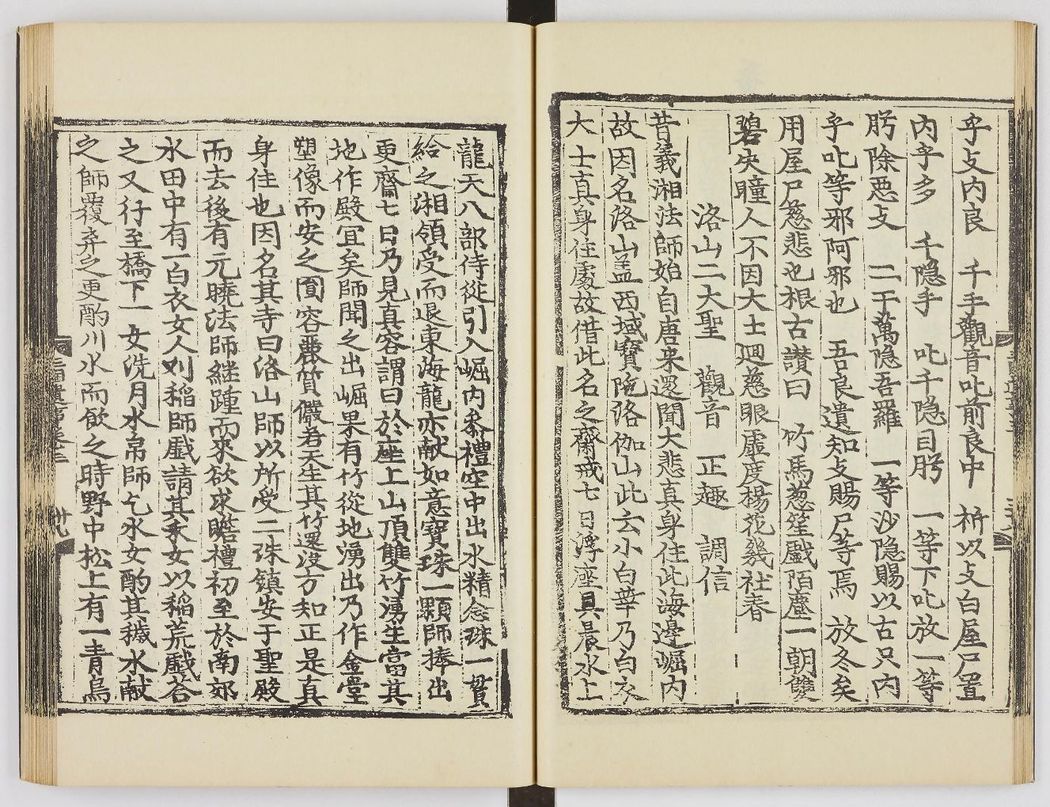 乎攴内良　千手觀音叱前良中　祈以攴白屋尸置
内乎多　千隐手　叱千隐目肹　一等下叱放一等
肹除惡攴　二于萬隐吾羅　一等沙隐賜以古只内
乎叱等邪阿邪也　吾良遺知攴賜尸等焉　放冬矣
用屋尸慈悲也根古讃曰　竹馬葱笙戱陌塵一朝雙
碧失瞳人不因大士迴慈眼虚度楊花幾社春
洛山二大聖　觀音　正趣　調信
昔義湘法師始自唐来還聞大悲真身住此海邊崛内
故因名洛山盖西域寶陁洛伽山此云小白華乃白衣
大士真身住處故借此名之齋戒七日浮座具晨水上
龍天八部侍從引入崛内叅禮空中出水精念珠一貫
給之湘領受而退東海龍亦献如意寶珠一顆師捧出
更齋七日乃見真容謂曰於座上山頂雙竹湧生當其
地作殿宜矣師聞之出崛果有竹從地湧出乃作金堂
塑像而安之圎容麗質儼若天生其竹還没方知正是真
身住也因名其寺曰洛山師以所受二珠鎮安于聖殿
而去後有元曉法師継踵而來欲求瞻禮初至於南郊
水田中有一白衣女人刈稻師戱請其禾女以稻荒戱荅
之又行至橋下一女洗月水帛師乞水女酌其穢水献
之師覆弃之更酌川水而飮之時野中松上有一青鳥